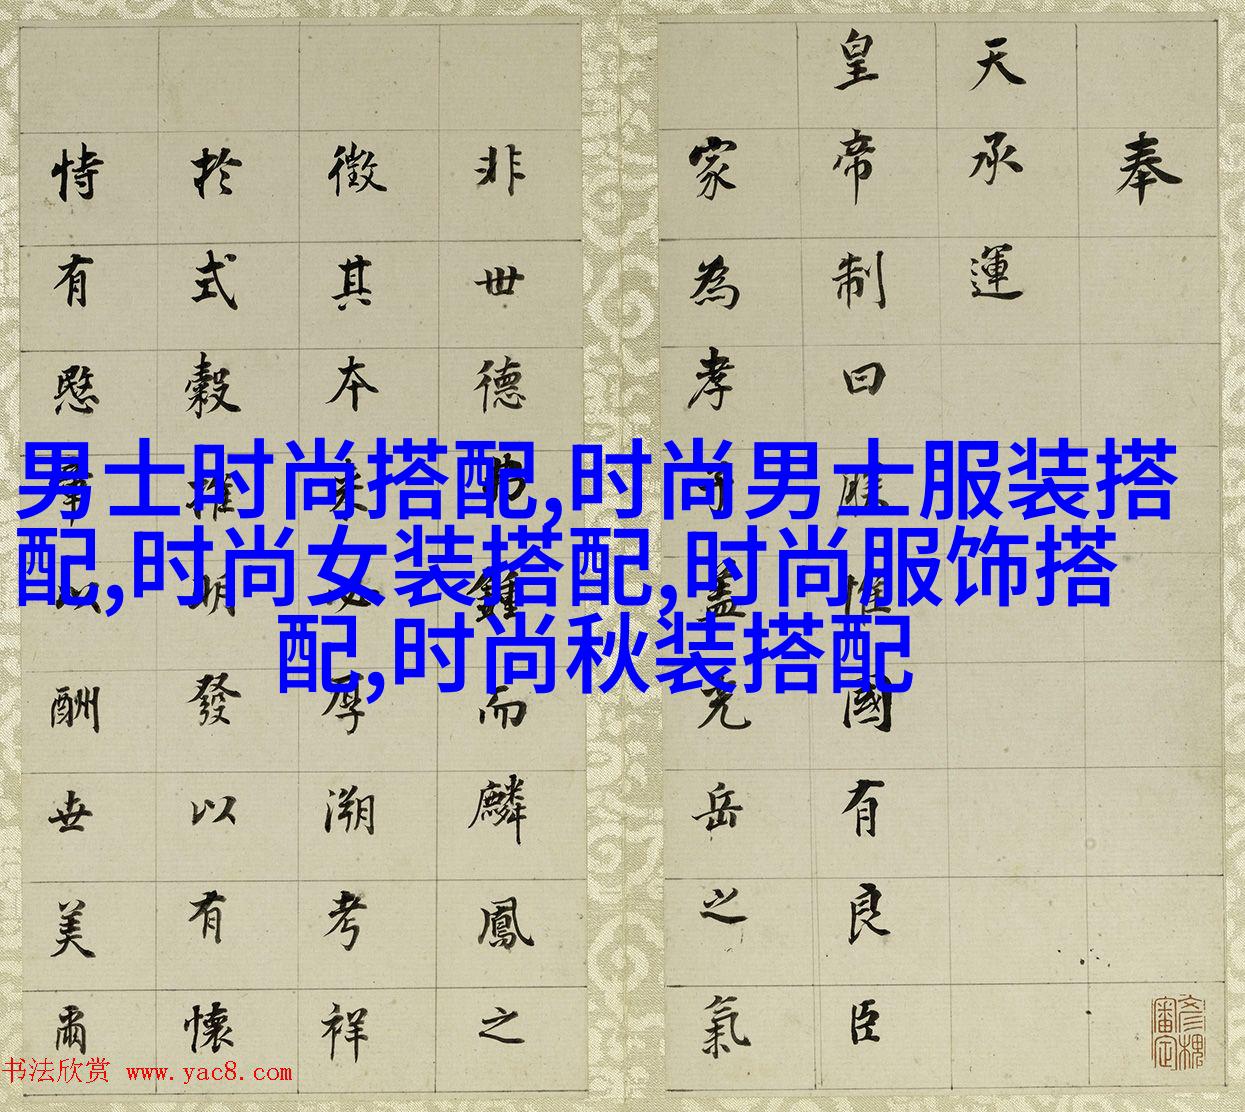 奉
天承運
皇帝制曰朕惟國有良臣
家為孝子蓋光岳之氣
非世德弗鍾而麟鳳之
徵其本來必厚溯考祥
於式穀惟明發以有懷
恃有愍章以酬世美爾
男士时尚搭配,时尚男士服装搭
配,时尚女装搭配,时尚服饰搭
配,时尚秋装搭配
书法欣赏 www.yac8.com